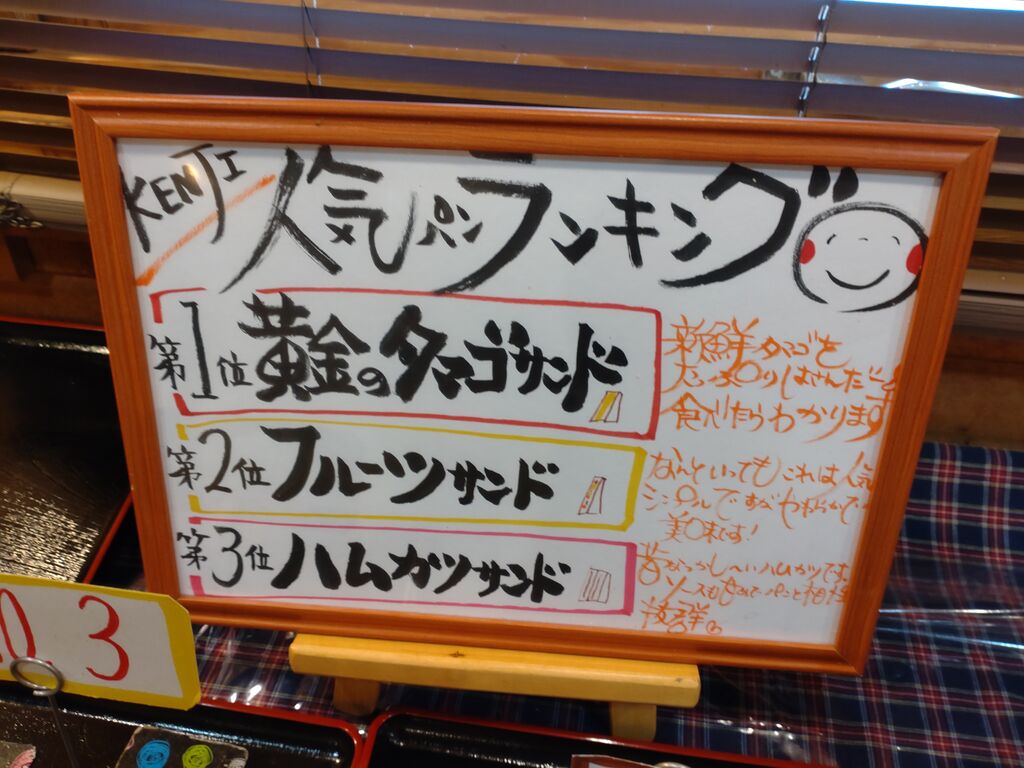 KENJI
人気パンランキング
第1位 黄金のタマゴサンド
新鮮タマゴを
たっぷりはさんだ
食べたらわかります
第2位 フルーツサンド
なんといってもこれは人気
シンプルです
美味です!
第3位 ハムカツサンド
昔なつかし〜いハムカツです。
ソースも パンと相性
抜群
NO.3